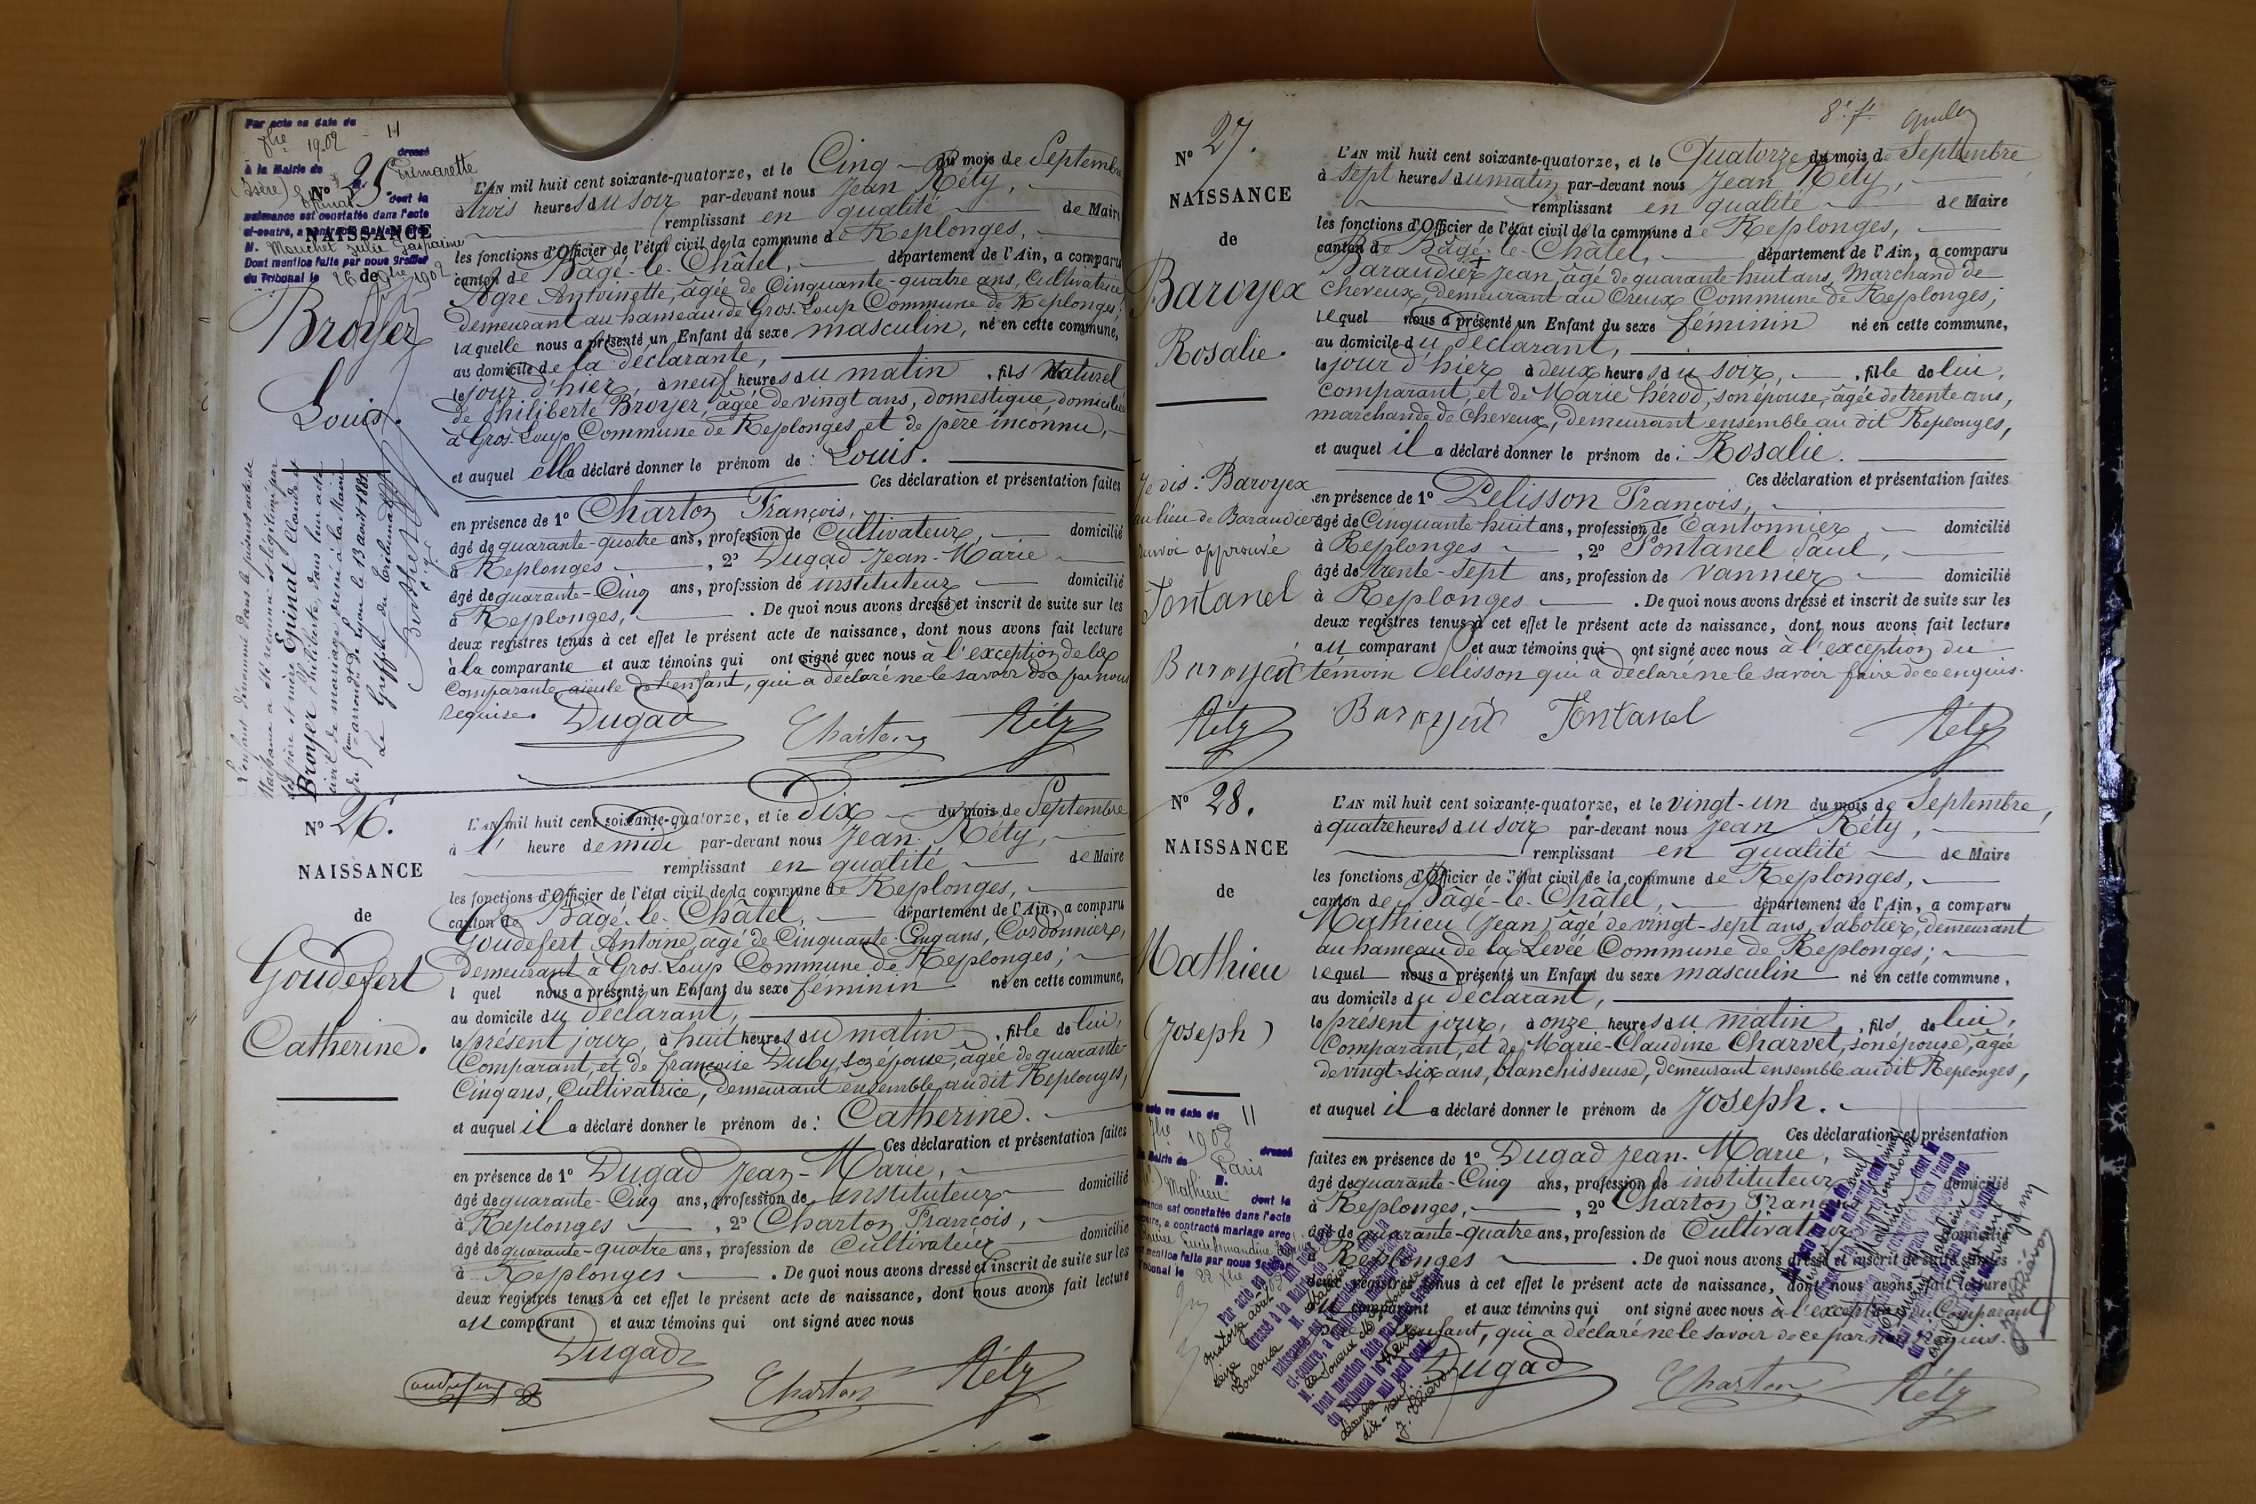 Par acte en date du
11 7bre 1902
dressé
à la Mairie de Primarette
(Isère)
dont la
naissance est constatée dans l'acte
ci-contre, a contracté mariage avec
M. Mouchet Julie Gasparine
Dont mention faite par nous Greffier
du Tribunal le 26 7bre 1902
N° 25.
NAISSANCE
de
Broyer
Louis.
L'enfant dénommé dans le présent acte de
Naissance a été reconnu et légitimé par
ses père et mère Epinat Claude et
Broyer Philiberte, dans leur acte
civil de mariage dressé à la Mairie
du arrondt de Lyon le 13 avril 1881
Le Greffier du Tribunal
Berthet
L'AN mil huit cent soixante-quatorze, et le Cinq du mois de Septembre
à trois heures du soir par-devant nous Jean Réty,
remplissant en qualité de Maire
les fonctions d'Officier de l'état civil de la commune de Replonges,
canton de Bâgé-le-Châtel, département de l'Ain, a comparu
Agre Antoinette, âgée de Cinquante-quatre ans, Cultivatrice,
demeurant au hameau de Gros-Loup Commune de Replonges;
laquelle nous a présenté un Enfant du sexe masculin, né en cette commune,
au domicile de la déclarante,
le jour d'hier, à neuf heures du matin, fils Naturel
de Philiberte Broyer, âgée de vingt ans, domestique, domiciliée
à Gros-Loup Commune de Replonges et de père inconnu,
et auquel elle a déclaré donner le prénom de : Louis.
Ces déclaration et présentation faites
en présence de 1° Charton François,
âgé de quarante-quatre ans, profession de Cultivateur, domicilié
à Replonges, 2° Dugad Jean-Marie
âgé de quarante-Cinq ans, profession de instituteur domicilié
à Replonges, . De quoi nous avons dressé et inscrit de suite sur les
deux registres tenus à cet effet le présent acte de naissance, dont nous avons fait lecture
à la comparante et aux témoins qui ont signé avec nous à l'exception de la
Comparante, aïeule de l'enfant, qui a déclaré ne le savoir de par nous
requise.
Dugad Charton Réty
N° 26.
NAISSANCE
de
Goudefert
Catherine.
L'AN mil huit cent soixante-quatorze, et le dix du mois de Septembre
à 1 heure de midi par-devant nous Jean Réty,
remplissant en qualité de Maire
les fonctions d'Officier de l'état civil de la commune de Replonges,
canton de Bâgé-le-Châtel, département de l'Ain, a comparu
Goudefert Antoine, âgé de Cinquante-Cinq ans, Cordonnier,
demeurant à Gros-Loup Commune de Replonges;
l quel nous a présenté un Enfant du sexe féminin né en cette commune,
au domicile du déclarant,
le présent jour, à huit heures du matin, fille de lui,
Comparant, et de Françoise Duby, son épouse, âgée de quarante-
Cinq ans, Cultivatrice, demeurant ensemble audit Replonges,
et auquel il a déclaré donner le prénom de : Catherine.
Ces déclaration et présentation faites
en présence de 1° Dugad Jean-Marie,
âgé de quarante-Cinq ans, profession de instituteur domicilié
à Replonges, 2° Charton François,
âgé de quarante-quatre ans, profession de Cultivateur domicilié
à Replonges . De quoi nous avons dressé et inscrit de suite sur les
deux registres tenus à cet effet le présent acte de naissance, dont nous avons fait lecture
au comparant et aux témoins qui ont signé avec nous
Dugad
Goudefert Charton Réty
8e f.
N° 27.
NAISSANCE
de
Baroyex
Rosalie.
Je dis : Baroyex
au lieu de Baraudier
renvoi approuvé
Fontanel
Baroyex
Réty
L'AN mil huit cent soixante-quatorze, et le Quatorze du mois de Septembre
à sept heures du matin par-devant nous Jean Réty,
remplissant en qualité de Maire
les fonctions d'Officier de l'état civil de la commune de Replonges,
canton de Bâgé-le-Châtel, département de l'Ain, a comparu
Baraudier + Jean, âgé de quarante huit ans, Marchand de
cheveux, demeurant au Creux Commune de Replonges;
lequel nous a présenté un Enfant du sexe féminin né en cette commune,
au domicile du déclarant,
le jour d'hier à deux heures du soir, fille de lui,
comparant, et de Marie hérod, son épouse, âgée de trente ans,
marchande de cheveux, demeurant ensemble au dit Replonges,
et auquel il a déclaré donner le prénom de : Rosalie.
Ces déclaration et présentation faites
en présence de 1° Pelisson François,
âgé de Cinquante huit ans, profession de Cantonnier, domicilié
à Replonges, 2° Fontanel Paul,
âgé de trente-sept ans, profession de vannier domicilié
à Replonges . De quoi nous avons dressé et inscrit de suite sur les
deux registres tenus à cet effet le présent acte de naissance, dont nous avons fait lecture
au comparant et aux témoins qui ont signé avec nous à l'exception du
témoin Pelisson qui a déclaré ne le savoir faire de ce enquis.
Baroyex Fontanel Réty
N° 28.
NAISSANCE
de
Mathieu
(Joseph)
acte en date du 11
7bre 1902
dressé
Mairie de Paris
M. Mathieu
dont la
naissance est constatée dans l'acte
a contracté mariage avec
mention faite par nous Greffier
Tribunal le 22 7bre
L'AN mil huit cent soixante-quatorze, et le vingt-un du mois de Septembre,
à quatre heures du soir par-devant nous Jean Réty,
remplissant en qualité de Maire
les fonctions d'Officier de l'état civil de la commune de Replonges,
canton de Bâgé-le-Châtel, département de l'Ain, a comparu
Mathieu (Jean), âgé de vingt-sept ans, sabotier, demeurant
au hameau de la Levée Commune de Replonges;
lequel nous a présenté un Enfant du sexe masculin né en cette commune,
au domicile du déclarant,
le présent jour, à onze heures du matin, fils de lui,
Comparant, et de Marie-Claudine Charvet, son épouse, âgée
de vingt-six ans, blanchisseuse, demeurant ensemble audit Replonges,
et auquel il a déclaré donner le prénom de Joseph.
Ces déclaration et présentation
faites en présence de 1° Dugad Jean-Marie,
âgé de quarante-Cinq ans, profession de instituteur domicilié
à Replonges, 2° Charton
âgé de quarante-quatre ans, profession de Cultivateur domicilié
à Replonges . De quoi nous avons dressé et inscrit de suite sur les
deux registres tenus à cet effet le présent acte de naissance, dont nous avons fait lecture
au comparant et aux témoins qui ont signé avec nous à l'exception du Comparant
enfant, qui a déclaré ne le savoir de ce par nous requis.
Dugad Charton Réty